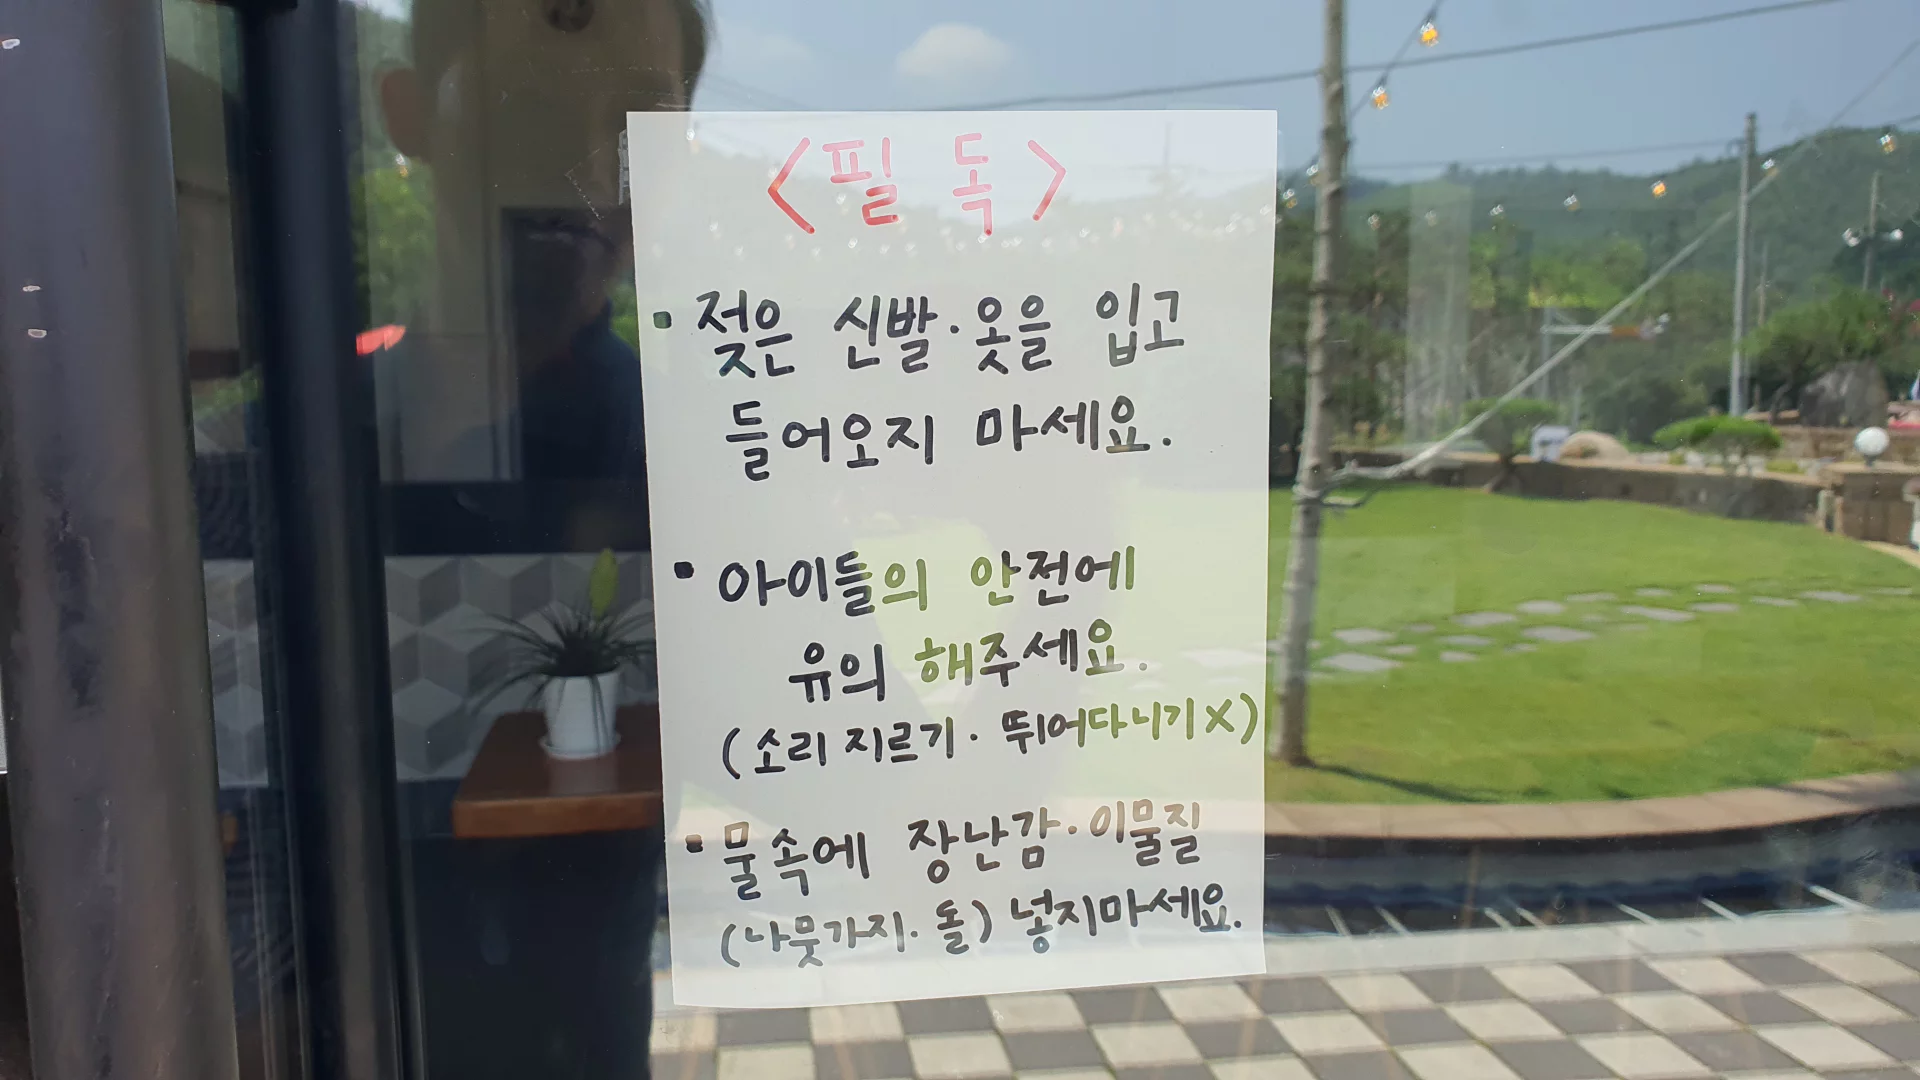 <필 독>
▪ 젖은 신발·옷을 입고
들어오지 마세요.
▪ 아이들의 안전에
유의 해주세요.
(소리 지르기· 뛰어다니기 X)
▪ 물속에 장난감·이물질
(나뭇가지· 돌) 넣지마세요.